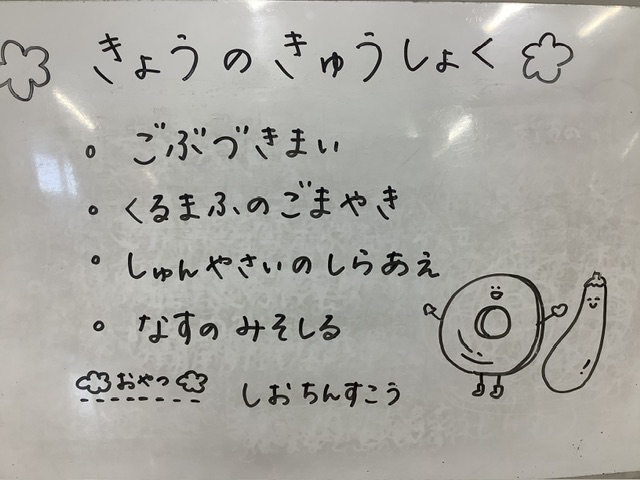 きょうのきゅうしょく
ごぶづきまい
くるまふのごまやき
しゅんやさいのしらあえ
なすのみそしる
おやつ しおちんすこう